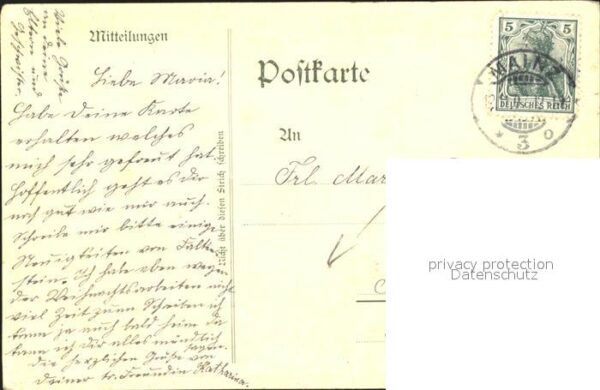 Viele Grüße
an deine
Eltern und
Geschwister.
Mitteilungen
Liebe Maria!
Habe Deine Karte
erhalten welches
mich sehr gefreut hat.
Hoffentlich geht es dir
noch gut wie mir auch.
Schreibe mir bitte einige
Neuigkeiten von Falken-
stein. Ich habe eben wegen
der Weihnachtsarbeiten nicht
viel Zeit zum Schreiben ich
kann ja auch bald heim da
kann ich dir alles mündlich
sagen.
die herzlichen Grüße von
deiner tr. Freundin Katharina.
Nicht über diesen Strich schreiben
Postkarte
An
Frl. Mar
5 5
DEUTSCHES REICH
MAINZ
* 3 o
privacy protection
Datenschutz